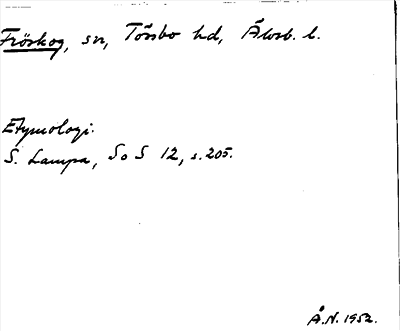 Fröskog, sn, Tössbo hd, Älvsb. l.
Etymologi.
S. Lampa, S o S 12, s. 205.
Å.N. 1952.